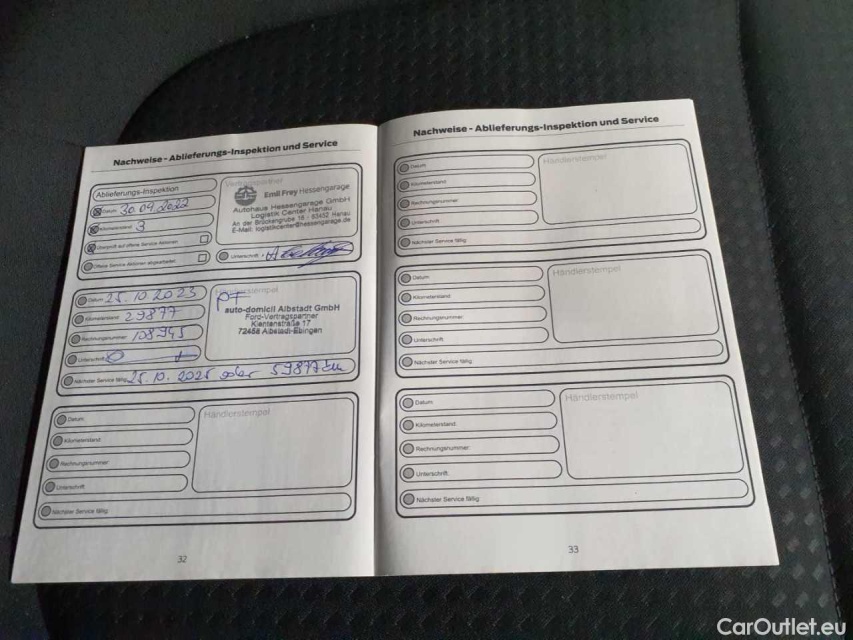 Nachweise - Ablieferungs-Inspektion und Service
Ablieferungs-Inspektion
Datum 30.09.2022
Kilometerstand 3
Geprüft auf offene Service Aktionen
Offene Service Aktionen abgearbeitet
Emil Frey Hessengarage
Autohaus Hessengarage GmbH
Logistik Center Hanau
An der Brückengrube 18 / 63452 Hanau
E-Mail: logistikcenter@hessengarage.de
Unterschrift
Datum 25.10.2023
Kilometerstand 29877
Rechnungsnummer 108945
Unterschrift
Händlerstempel
auto-domicil Albstadt GmbH
Ford-Vertragspartner
Kientenstraße 17
72458 Albstadt-Ebingen
Nächster Service fällig 25.10.2025 oder 59877 km
Datum
Kilometerstand
Rechnungsnummer
Unterschrift
Händlerstempel
Nächster Service fällig
32
Nachweise - Ablieferungs-Inspektion und Service
Datum
Kilometerstand
Rechnungsnummer
Unterschrift
Händlerstempel
Nächster Service fällig
Datum
Kilometerstand
Rechnungsnummer
Unterschrift
Händlerstempel
Nächster Service fällig
Datum
Kilometerstand
Rechnungsnummer
Unterschrift
Händlerstempel
Nächster Service fällig
33
CarOutlet.eu